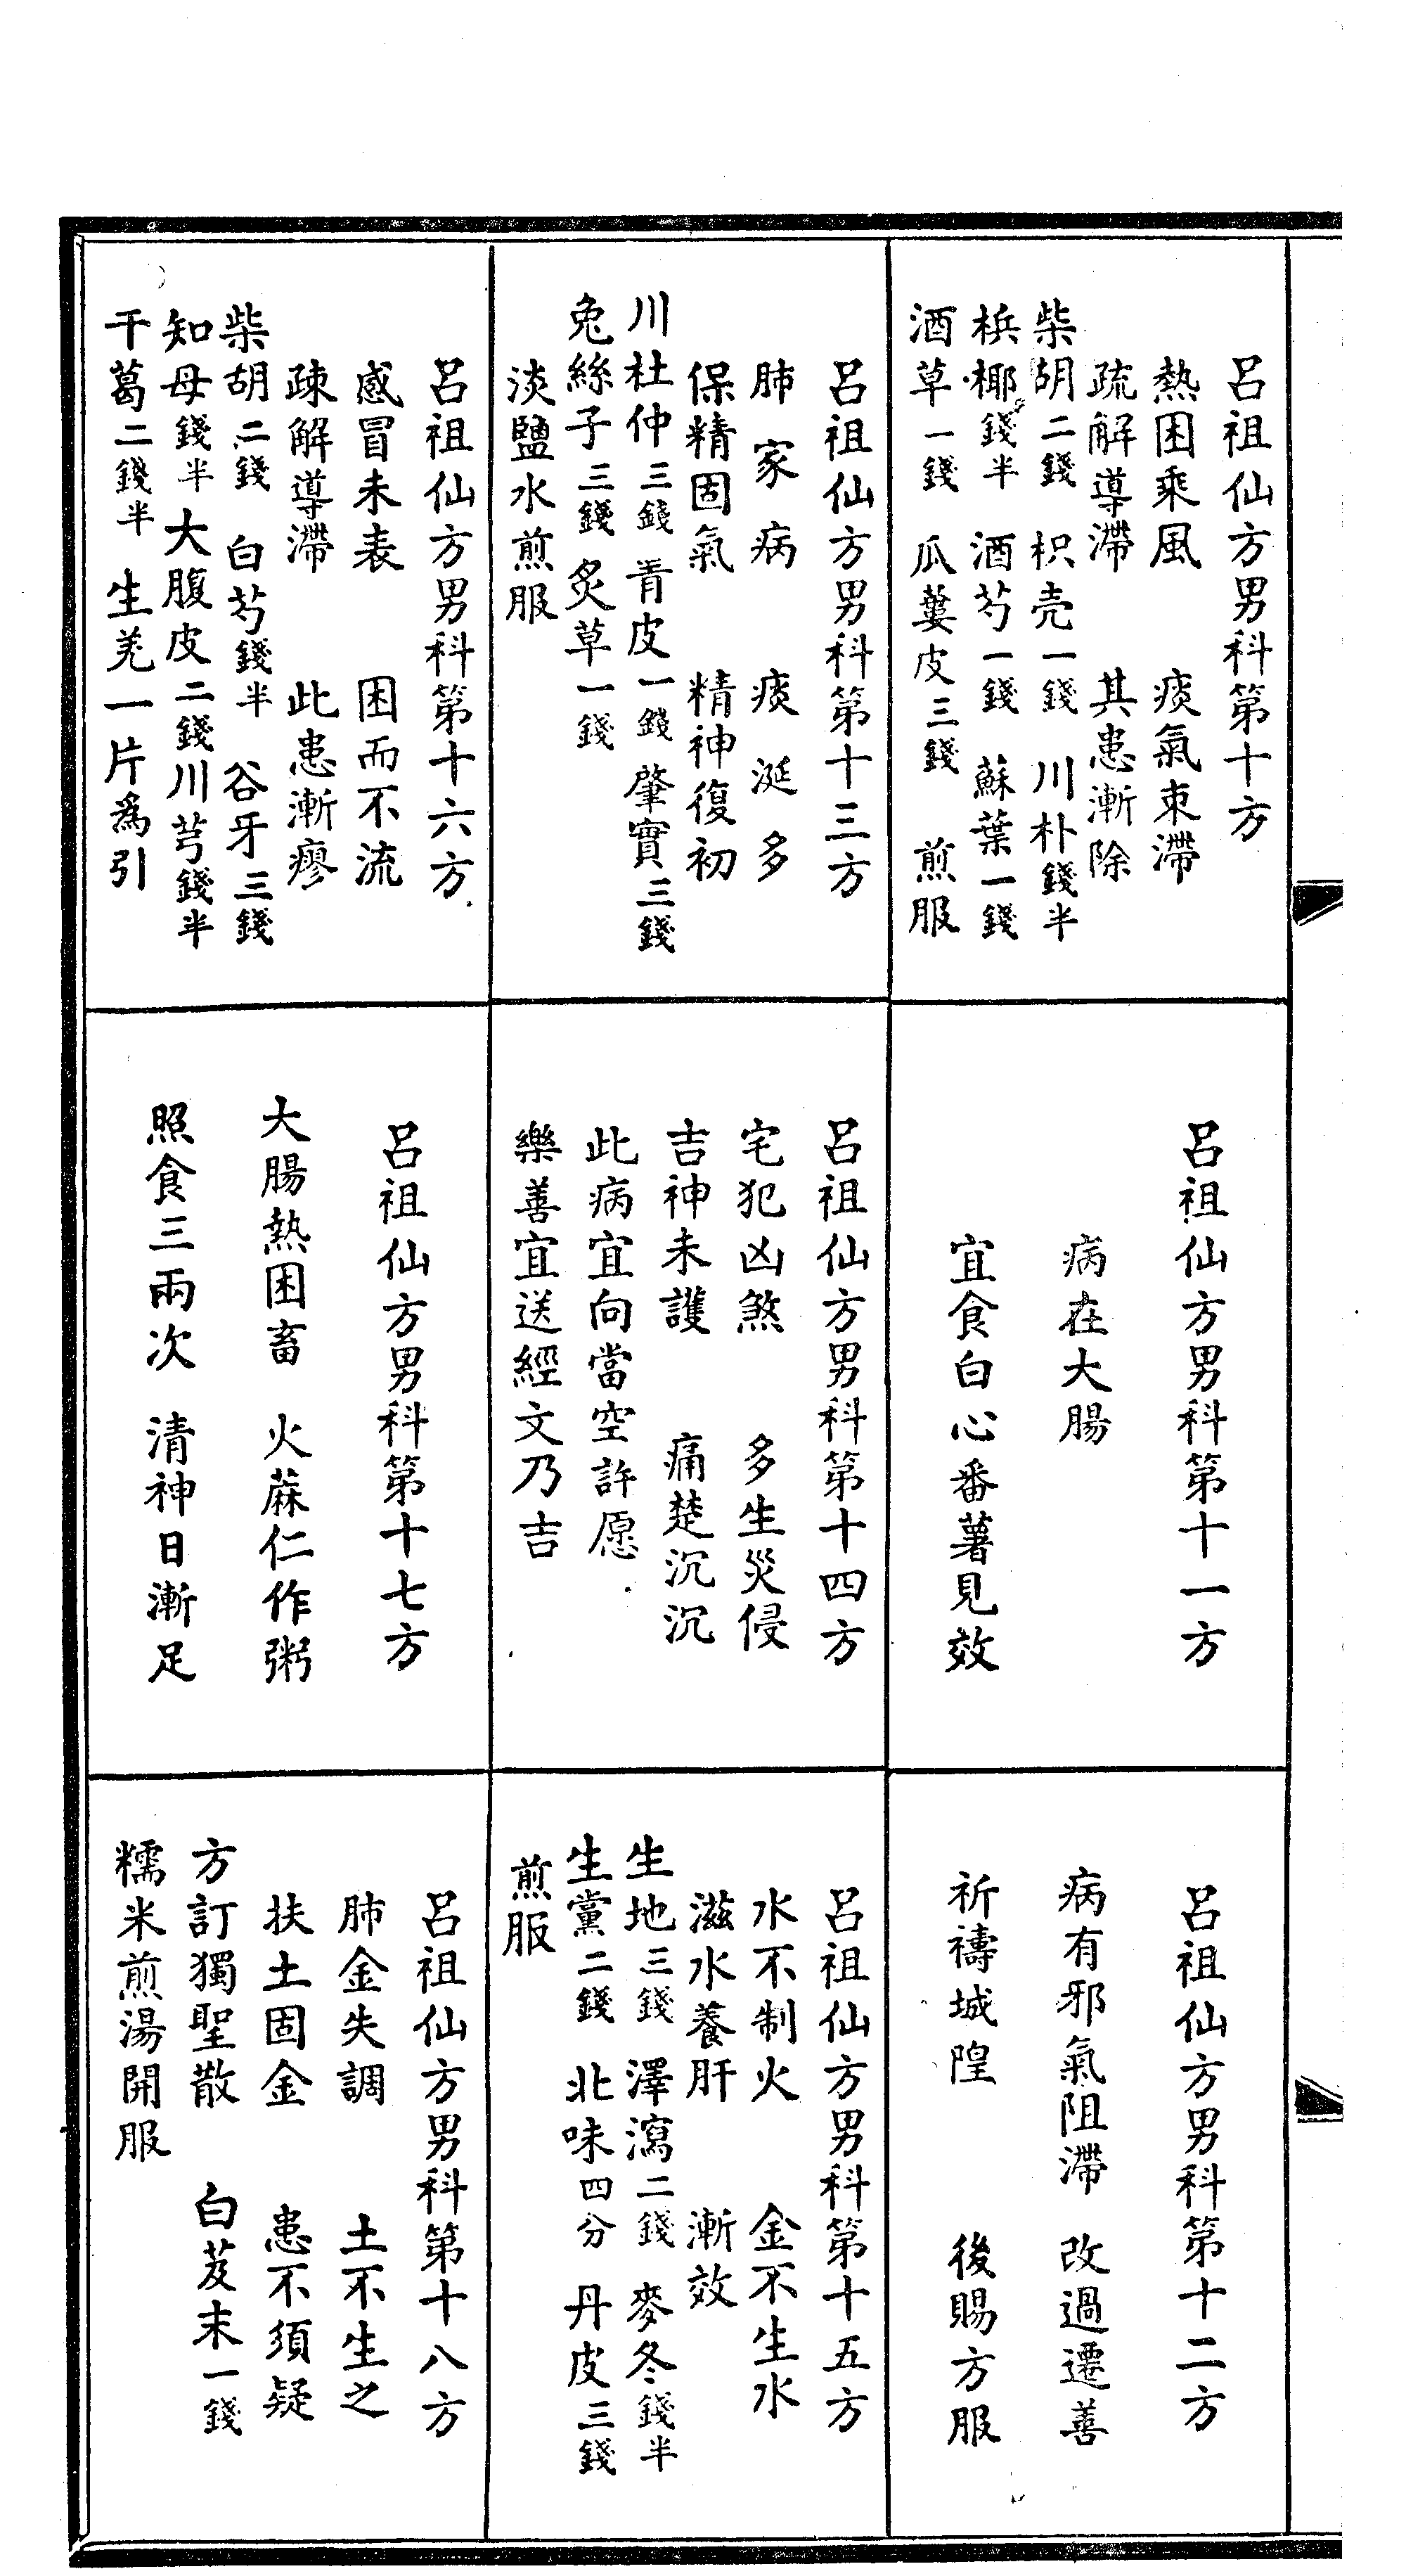 呂祖仙方男科第十方
熱困乘風　痰氣束滯
疏解導滯　其患漸除
柴胡二錢　枳壳一錢　川朴錢半
梹榔錢半　酒芍一錢　蘇葉一錢
酒草一錢　瓜蔞皮三錢　煎服
呂祖仙方男科第十一方
病在大腸
宜食白心番薯見效
呂祖仙方男科第十二方
病有邪氣阻滯　改過遷善
祈禱城隍　後賜方服
呂祖仙方男科第十三方
肺家病　痰涎多
保精固氣　精神復初
川杜仲三錢　青皮一錢　肇實三錢
兔絲子三錢　炙草一錢
淡鹽水煎服
呂祖仙方男科第十四方
宅犯凶煞　多生災侵
吉神未護　痛楚沉沉
此病宜向當空許愿
樂善宜送經文乃吉
呂祖仙方男科第十五方
水不制火　金不生水
滋水養肝　漸效
生地三錢　澤瀉二錢　麥冬錢半
生黨二錢　北味四分　丹皮三錢
煎服
呂祖仙方男科第十六方
感冒未表　困而不流
疎解導滯　此患漸瘳
柴胡二錢　白芍錢半　谷牙三錢
知母錢半　大腹皮二錢　川芎錢半
干葛二錢半　生羌一片爲引
呂祖仙方男科第十七方
大腸熱困畜　火蔴仁作粥
照食三兩次　清神日漸足
呂祖仙方男科第十八方
肺金失調　土不生之
扶土固金　患不須疑
方訂獨聖散　白芨末一錢
糯米煎湯開服